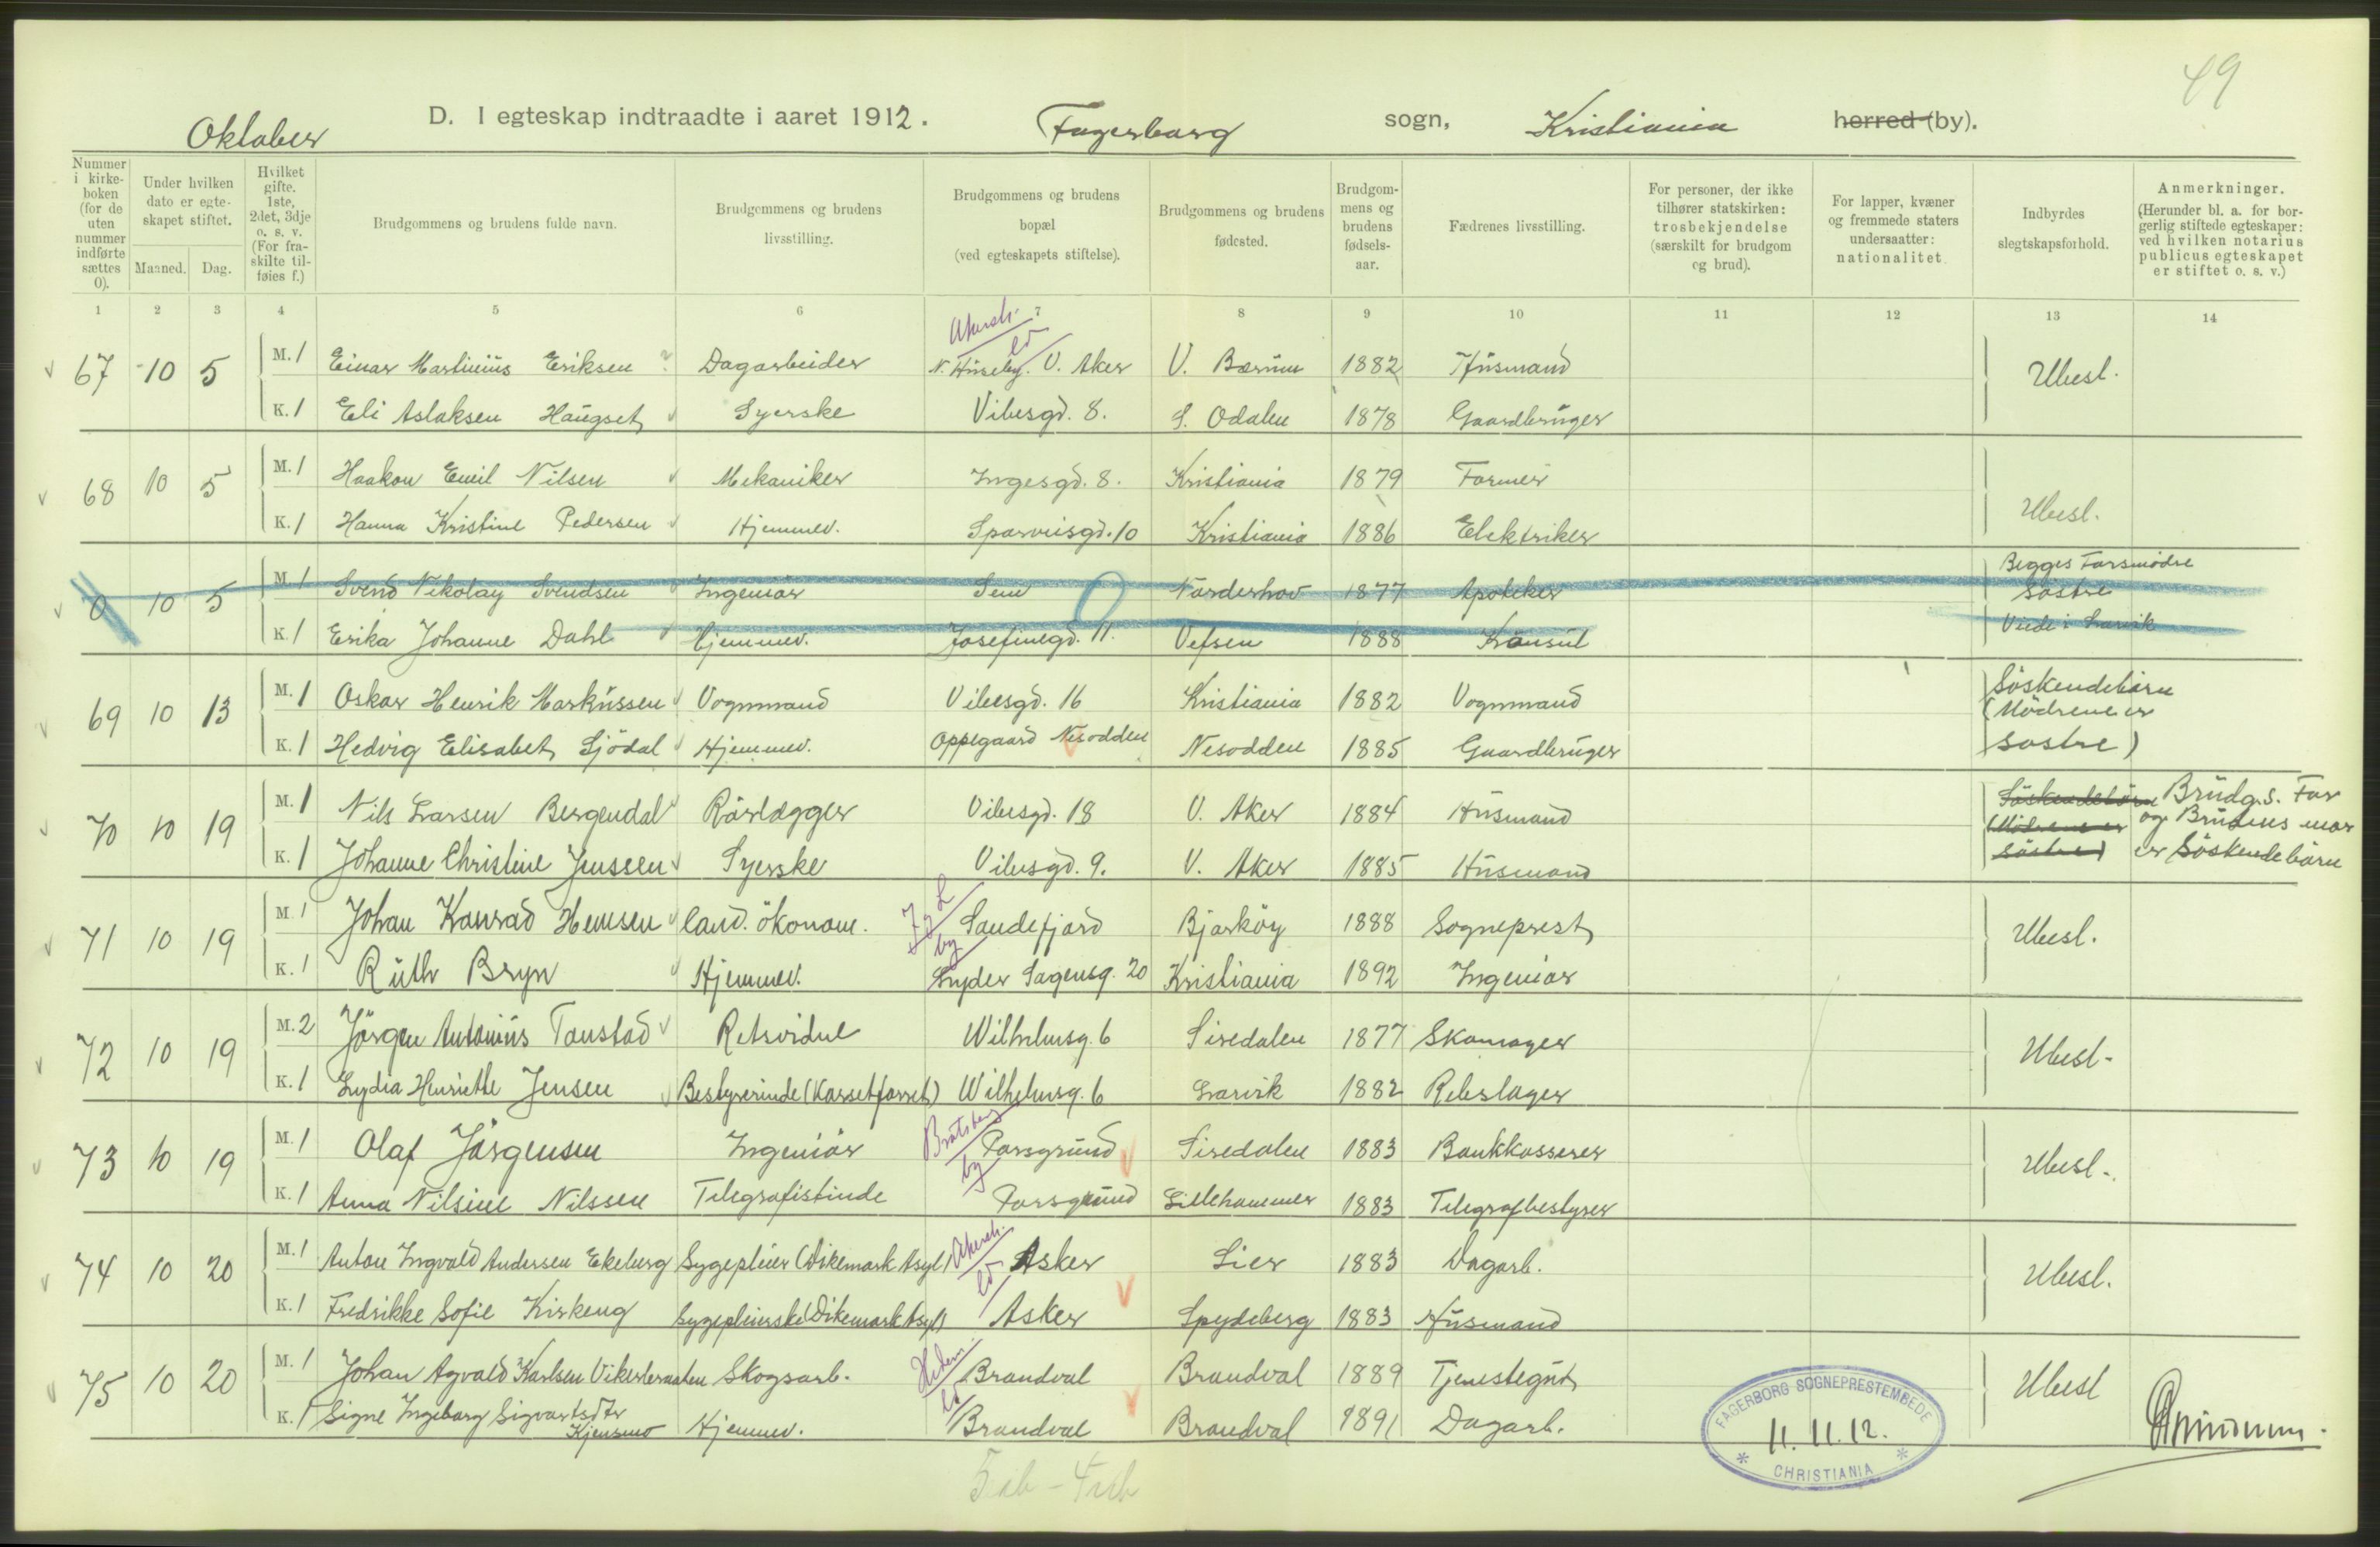 49
Oktober D. I egteskap indtraadte i aaret 1912. Fagerborg sogn, Kristiania herred (by).
Nummer i kirke-boken (for de uten nummer indførte sættes 0).
Under hvilken dato er egte-skapet stiftet.
Maaned. Dag.
Hvilket gifte. 1ste, 2det, 3dje o. s. v. (For fra-skilte til-føies f.)
Brudgommens og brudens fulde navn.
Brudgommens og brudens livsstilling.
Brudgommens og brudens bopæl (ved egteskapets stiftelse).
Brudgommens og brudens fødested.
Brudgom-mens og brudens fødsels-aar.
Fædrenes livsstilling.
For personer, der ikke tilhører statskirken: trosbekjendelse (særskilt for brudgom og brud).
For lapper, kvæner og fremmede staters undersaatter: nationalitet
Indbyrdes slegtskapsforhold.
Anmerkninger. (Herunder bl. a. for bor-gerlig stiftede egteskaper: ved hvilken notarius publicus egteskapet er stiftet o. s. v.)
1 2 3 4 5 6 7 8 9 10 11 12 13 14
Akersh. ld
67 10 5 M. 1 Einar Martinius Eriksen Dagarbeider N. Huseby. V. Aker V. Bærum 1882 Husmand Ubesl.
K. 1 Eli Aslaksen Haugset Syerske Vibesgd. 8. S. Odalen 1878 Gaardbruger
68 10 5 M. 1 Haakon Emil Nilsen Mekaniker Ingesgd. 8. Kristiania 1879 Former Ubesl.
K. 1 Hanna Kristine Pedersen Hjemmev. Sporveisgd. 10 Kristiania 1886 Elektriker
0 10 5 M. 1 Svend Nikolay Svendsen Ingeniør Sem Norderhov 1877 Apoteker Begges Farsmødre søstre
K. 1 Erika Johanne Dahl Hjemmev. Josefinegd. 11. Vefsen 1888 Konsul Viede i Larvik
69 10 13 M. 1 Oskar Henrik Markussen Vognmand Vibesgd. 16 Kristiania 1882 Vognmand Søskendebørn (Mødrene er søstre)
K. 1 Hedvig Elisabet Sjödal Hjemmev. Oppegaard Nesodden Nesodden 1885 Gaardbruger
70 10 19 M. 1 Nils Larsen Bergendal Rørlægger Vibesgd. 18 V. Aker 1884 Husmand Søskendebørn (Mødrene er søstre) Brudg.s. Far og Brudens mor er Søskendebørn
K. 1 Johanne Christine Jenssen Syerske Vibesgd. 9. V. Aker 1885 Husmand
J & L by
71 10 19 M. 1 Johan Konrad Hemsen Cand. økonom. Sandefjord Bjarkøy 1888 Sogneprest Ubesl.
K. 1 Ruth Bryn Hjemmev. Lyder Sagensg. 20 Kristiania 1892 Ingeniør
72 10 19 M. 2 Jørgen Antonius Tonstad Retsvidne Wilhelmsg. 6 Siredalen 1877 Skomager Ubesl.
K. 1 Lydia Henriette Jensen Bestyrerinde (Korsetforret) Wilhelmsg. 6 Larvik 1882 Rebslager
Bratsberg by
73 10 19 M. 1 Olaf Jørgensen Ingeniør Porsgrund Siredalen 1883 Bankkasserer Ubesl.
K. 1 Anna Nilsine Nilssen Telegrafistinde Porsgrund Lillehammer 1883 Telegrafbestyrer
Akersh. ld
74 10 20 M. 1 Anton Ingvald Andersen Ekeberg Sygepleier (Dikemark Asyl) Asker Lier 1883 Dagarb. Ubesl.
K. 1 Fredrikke Sofie Kirkeng Sygepleierske (Dikemark Asyl) Asker Spydeberg 1883 Husmand
Hedem. ld
75 10 20 M. 1 Johan Agvald Karlsen Vikerbraaten Skogsarb. Brandval Brandval 1889 Tjenestegut Ubesl
K. 1 Signe Ingeborg Sigvartsdtr Kjensmo Hjemmev. Brandval Brandval 1891 Dagarb.
FAGERBORG SOGNEPRESTEMBEDE
11. 11. 12.
* CHRISTIANIA *